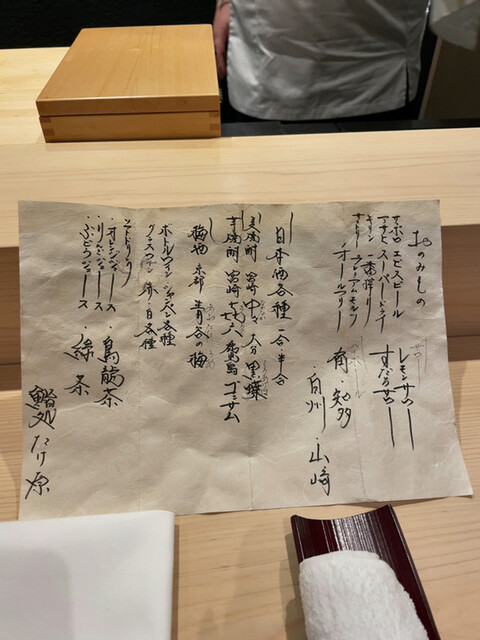 おのみもの
サッポロ エビスビール
アサヒ スーパードライ
キリン 一番搾り
サントリー プレミアムモルツ
オールフリー
サワー
レモンサワー
すだちサワー
ハイボール
角・知多
・白州・山崎
日本酒各種 一合 半合
麦焼酎 宮崎 中々 大分
芋焼酎 宮崎 七七六
梅酒 京都 青谷の梅
ボトルワイン シャンパン各種
グラスワイン 赤・白各種
ソフトドリンク
・オレンジジュース
・りんごジュース
・ぶどうジュース
・烏龍茶
・緑茶
鮨処 たけ原